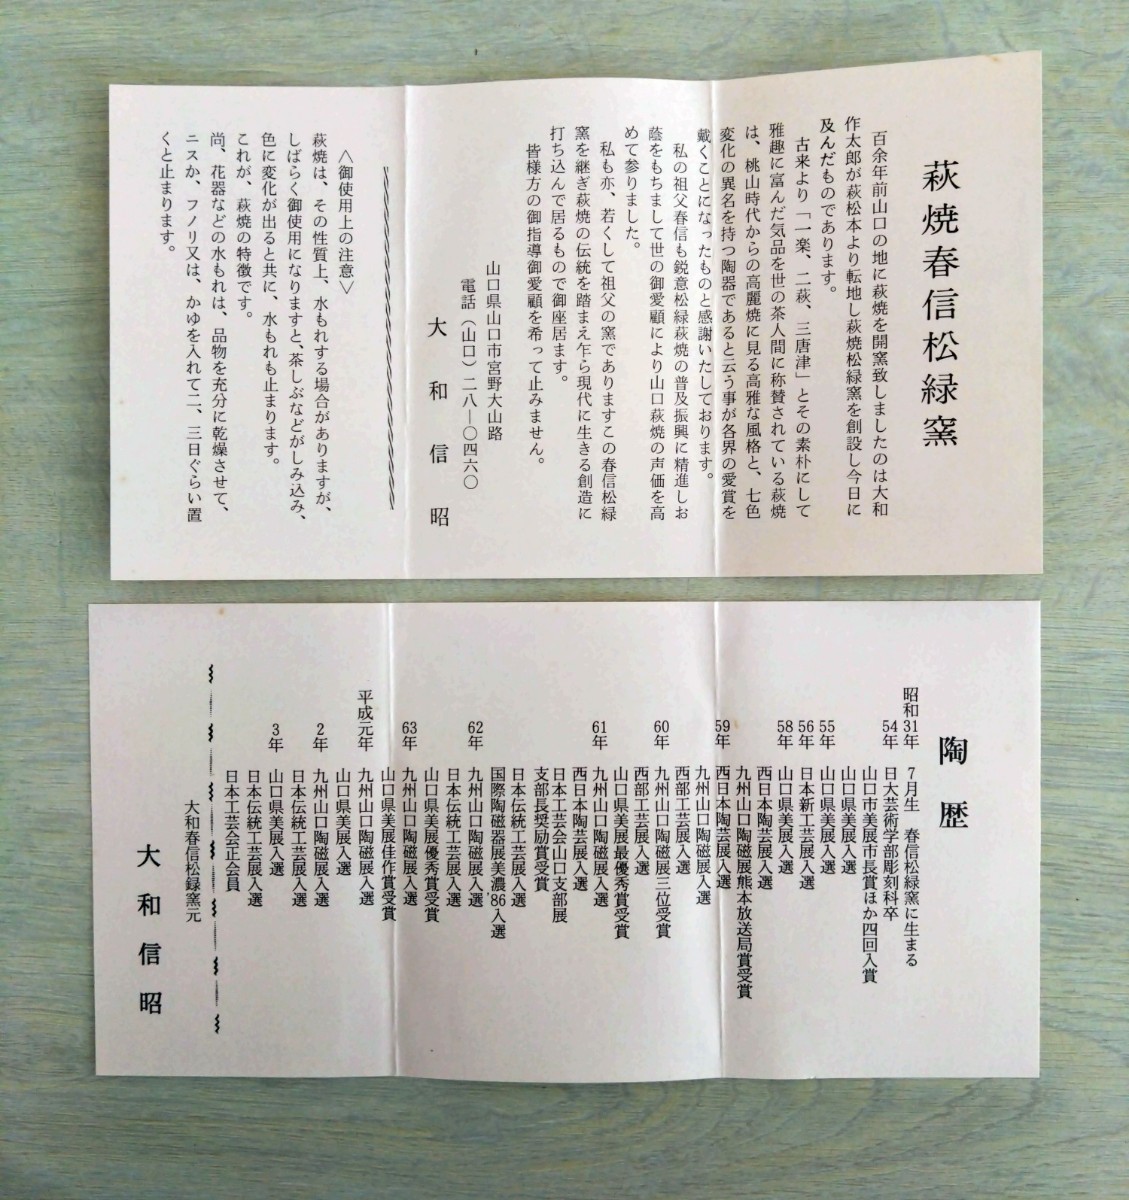 萩焼春信松緑窯
百余年前山口の地に萩焼を開窯致しましたのは大和
作太郎が萩松本より転地し萩焼松緑窯を創設し今日に
及んだものであります。
古来より「一楽、二萩、三唐津」とその素朴にして
雅趣に富んだ気品を世の茶人間に称賛されている萩焼
は、桃山時代からの高麗焼に見る高雅な風格と、七色
変化の異名を持つ陶器であると云う事が各界の愛賞を
戴くことになったものと感謝いたしております。
私の祖父春信も鋭意松緑萩焼の普及振興に精進しお
蔭をもちまして世の御愛顧により山口萩焼の声価を高
めて参りました。
私も亦、若くして祖父の窯でありますこの春信松緑
窯を継ぎ萩焼の伝統を踏まえ乍ら現代に生きる創造に
打ち込んで居るもので御座居ます。
皆様方の御指導御愛顧を希って止みません。
山口県山口市宮野大山路
電話（山口）二八―〇四六〇
大和信昭
〈御使用上の注意〉
萩焼は、その性質上、水もれする場合がありますが、
しばらく御使用になりますと、茶しぶなどがしみ込み、
色に変化が出ると共に、水もれも止まります。
これが、萩焼の特徴です。
尚、花器などの水もれは、品物を充分に乾燥させて、
ニスか、フノリ又は、かゆを入れて二、三日ぐらい置
くと止まります。
陶歴
昭和31年 7月生 春信松緑窯に生まる
54年 日大芸術学部彫刻科卒
山口市美展市長賞ほか四回入賞
山口県美展入選
55年 山口県美展入選
56年 日本新工芸展入選
58年 山口県美展入選
西日本陶芸展入選
九州山口陶磁展熊本放送局賞受賞
59年 西日本陶芸展入選
九州山口陶磁展入選
西部工芸展入選
60年 九州山口陶磁展三位受賞
西部工芸展入選
山口県美展最優秀賞受賞
61年 九州山口陶磁展入選
西日本陶芸展入選
日本工芸会山口支部展
支部長奨励賞受賞
日本伝統工芸展入選
国際陶磁器展美濃'86入選
62年 九州山口陶磁展入選
日本伝統工芸展入選
山口県美展優秀賞受賞
63年 九州山口陶磁展入選
山口県美展佳作賞受賞
平成元年 九州山口陶磁展入選
山口県美展入選
2年 九州山口陶磁展入選
日本伝統工芸展入選
3年 山口県美展入選
日本伝統工芸展入選
日本工芸会正会員
大和春信松緑窯元
大和信昭